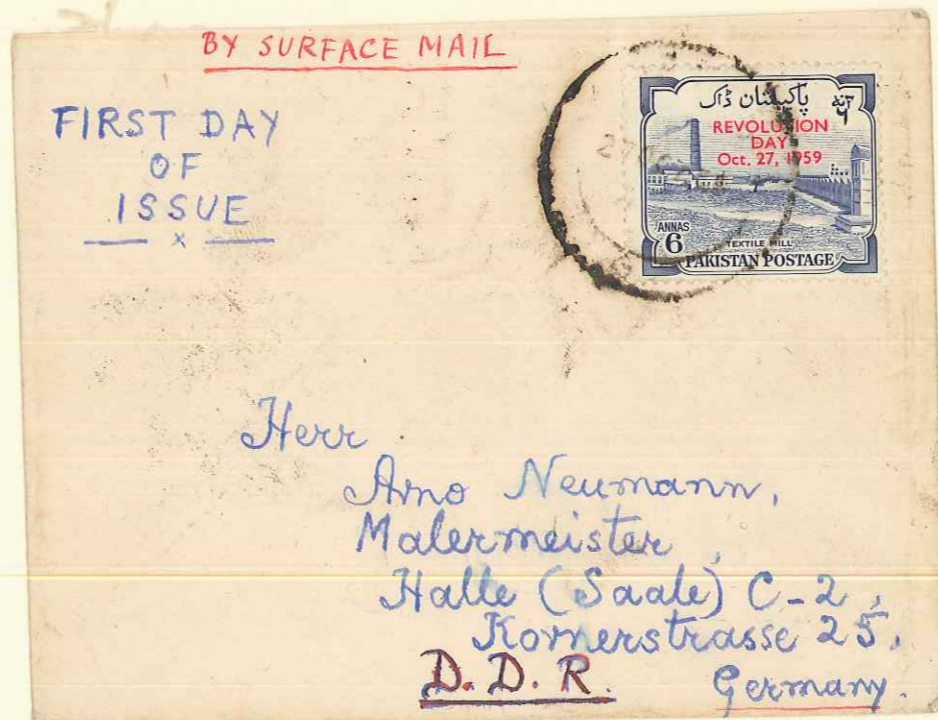 BY SURFACE MAIL
FIRST DAY
OF
ISSUE
پاکستان ڈاک
REVOLUTION
DAY
Oct. 27, 1959
ANNAS
6
TEXTILE MILL
PAKISTAN POSTAGE
Herr
Arno Neumann,
Malermeister,
Halle (Saale) C-2,
Kornerstrasse 25.
D. D. R.
Germany.